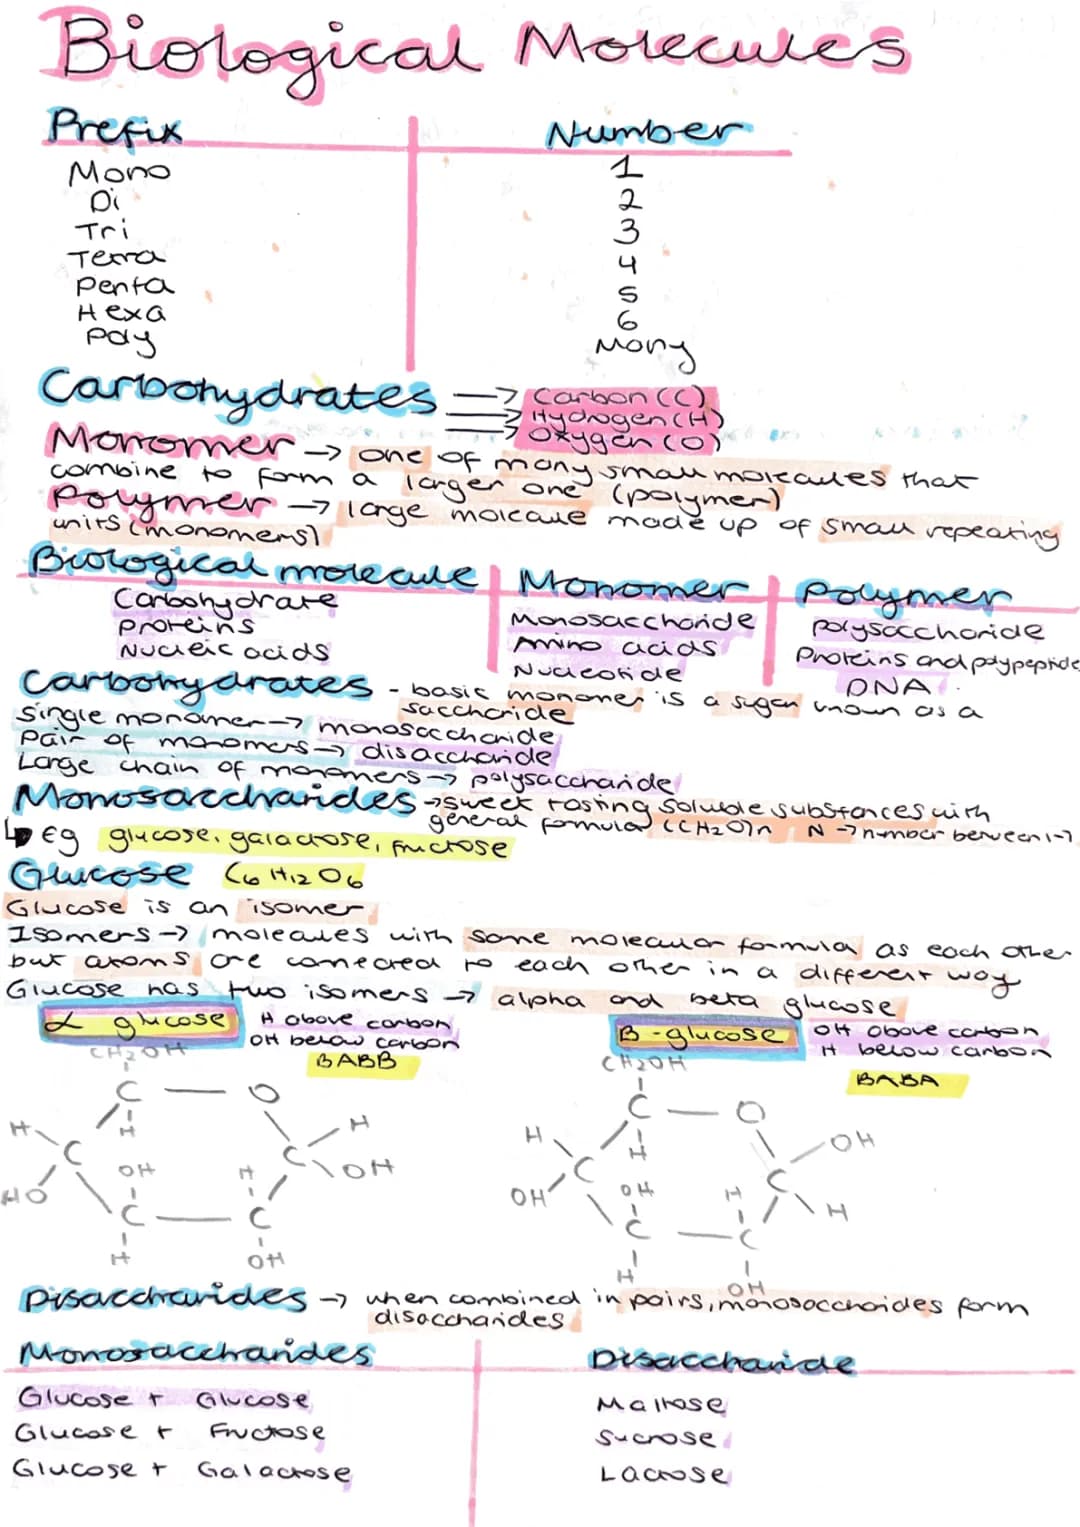 Biological Molecules
Prefix Number
Mono 1
Di 2
Tri 3
Tetra 4
Penta 5
Hexa 6
Poly Many
Carbohydrates → Carbon (C)
→ Hydrogen (H)
→ Oxygen (O)
Monomer → one of many small molecules that
combine to form a larger one (polymer)
Polymer → large molecule made up of small repeating
units (monomers)
Biological molecule Monomer Polymer
Carbohydrate Monosaccharide Polysaccharide
Proteins Amino acids Proteins and polypeptide
Nucleic acids Nucleotide DNA
Carbohydrates - basic monomer is a sugar known as a
saccharide
Single monomer → monosaccharide
Pair of monomers → disaccharide
Large chain of monomers → polysaccharide
Monosaccharides → sweet tasting soluble substances with
general formula (CH2O)n N → number between 1-7
↳ Eg glucose, galactose, fructose
Glucose C6H12O6
Glucose is an isomer
Isomers → molecules with same molecular formula as each other
but atoms are connected to each other in a different way
Glucose has two isomers → alpha and beta glucose
α glucose H above carbon
OH below carbon
BABB
B-glucose OH above carbon
H below carbon
BABA
CH2OH
C O
H H H
C C
HO OH H OH
C C
H OH
CH2OH
C O
H H OH
C C
OH OH H H
C C
H OH
Disaccharides → when combined in pairs, monosaccharides form
disaccharides
Monosaccharides Disaccharide
Glucose + Glucose Maltose
Glucose + Fructose Sucrose
Glucose + Galactose Lactose